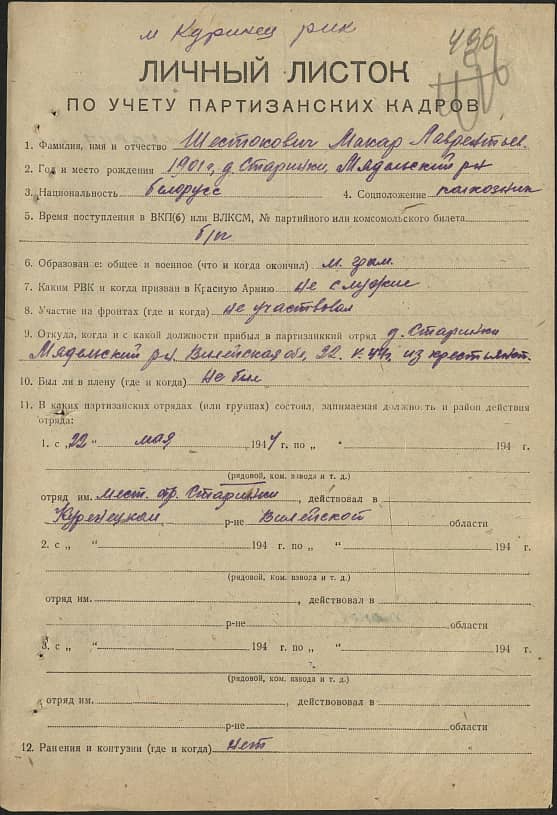 м Куринец рик
496
ЛИЧНЫЙ ЛИСТОК
ПО УЧЕТУ ПАРТИЗАНСКИХ КАДРОВ
1. Фамилия, имя и отчество Шестокович Макар Лаврентьев.
2. Год и место рождения 1901 г, д. Старинки, Мядельский р-н
3. Национальность белорусс 4. Соцположение
5. Время поступления в ВКП(б) или ВЛКСМ, № партийного или комсомольского билета
б/п
6. Образован е: общее и военное (что и когда окончил) м. грам.
7. Каким РВК и когда призван в Красную Армию не служил
8. Участие на фронтах (где и когда) не участвовал
9. Откуда, когда и с какой должности прибыл в партизанкий отряд д. Старинки
Мядельский р-н. Вилейская обл, 22. V. 44 г. из крестьянст.
10. Был ли в плену (где и когда) не был
11. В каких партизанских отрядах (или группах) состоял, занимаемая должность и район действия
отряда:
1. с „22" мая 1944 г. по „ " 194 г.
(рядовой, ком. взвода и т. д.)
отряд им. мест. отр. Старинки, действовал в
Куренецком р-не Вилейской области
2. с „ " 194 г. по „ " 194 г.
(рядовой, ком. взвода и т. д.)
отряд им. , действовал в
р-не области
3. с „ " 194 г. по „ " 194 г.
(рядовой, ком. взвода и т. д.)
отряд им. , действововал в
р-не области
12. Ранения и контузии (где и когда) нет